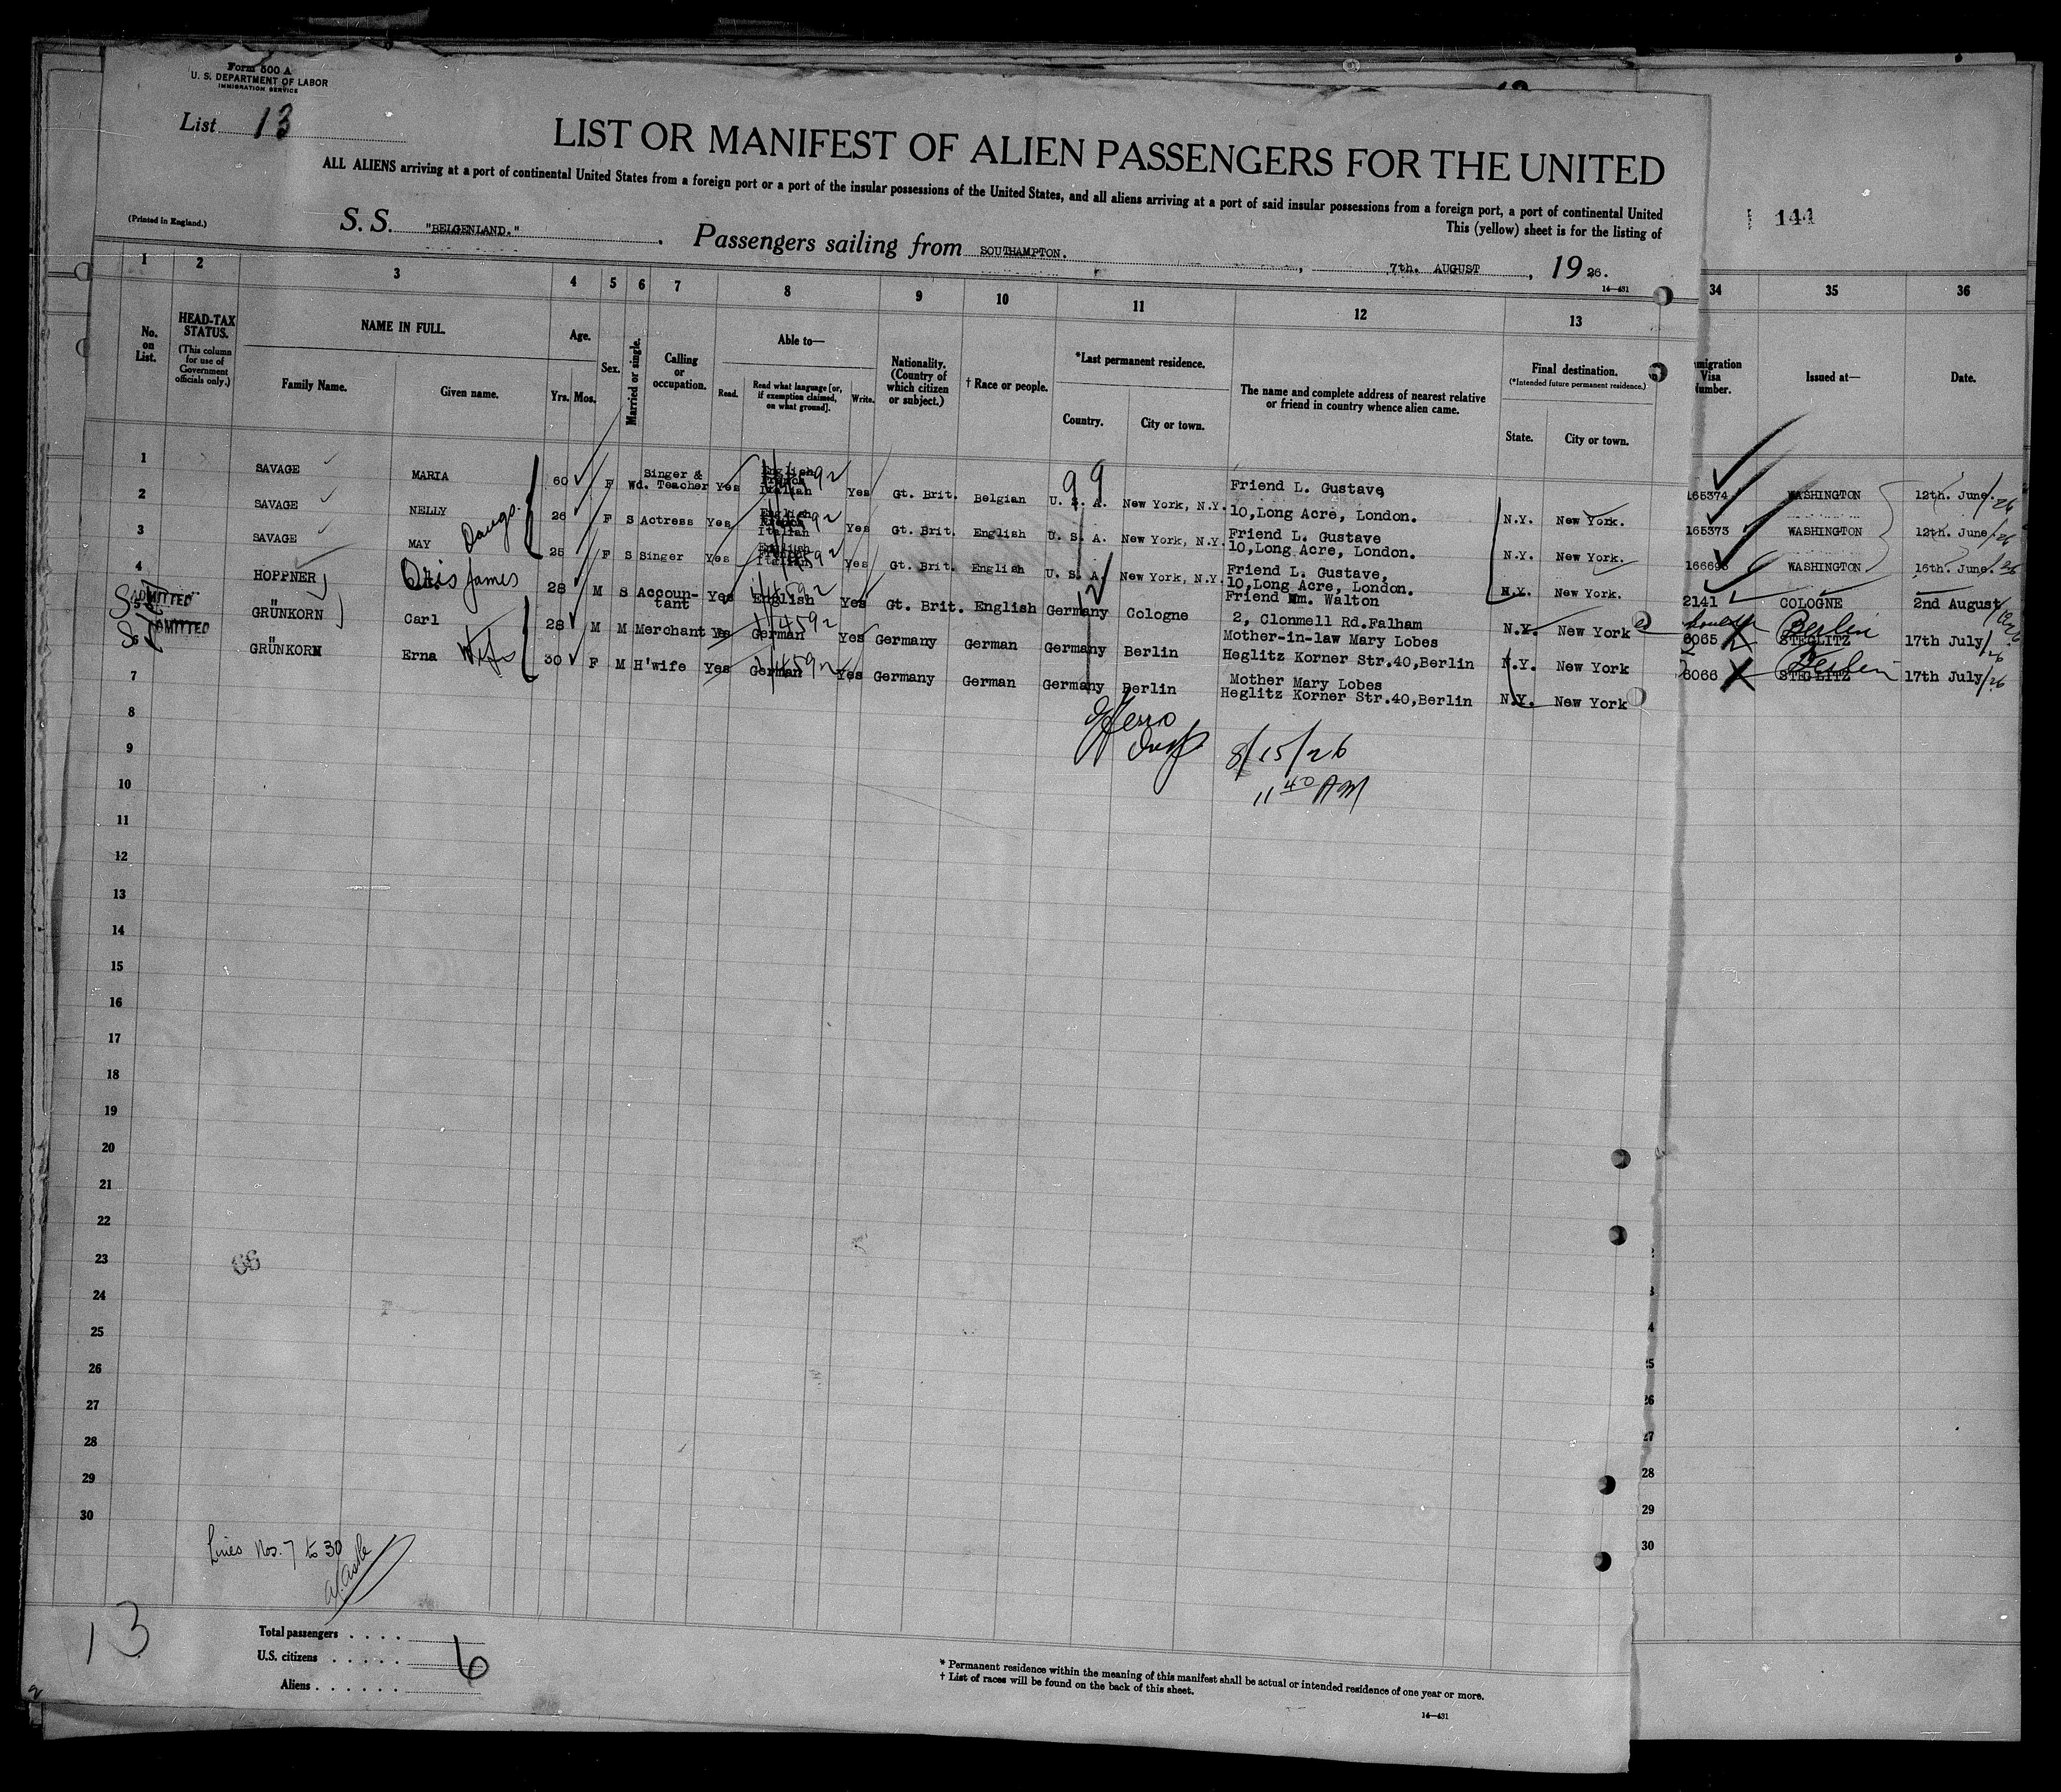 Form 500 A
U. S. DEPARTMENT OF LABOR
IMMIGRATION SERVICE
List 13
LIST OR MANIFEST OF ALIEN PASSENGERS FOR THE UNITED
ALL ALIENS arriving at a port of continental United States from a foreign port or a port of the insular possessions of the United States, and all aliens arriving at a port of said insular possessions from a foreign port, a port of continental United
This (yellow) sheet is for the listing of
144
(Printed in England.)
S. S. "BELGENLAND." Passengers sailing from SOUTHAMPTON. , 7th. AUGUST , 19 26.
16—431
1 2 3 4 5 6 7 8 9 10 11 12 13 34 35 36
No. on List.
HEAD-TAX STATUS.
(This column for use of Government officials only.)
NAME IN FULL.
Family Name. Given name.
Age.
Yrs. Mos.
Sex.
Married or single.
Calling or occupation.
Able to—
Read. Read what language [or, if exemption claimed, on what ground]. Write.
Nationality. (Country of which citizen or subject.)
† Race or people.
*Last permanent residence.
Country. City or town.
The name and complete address of nearest relative or friend in country whence alien came.
Final destination.
(*Intended future permanent residence.)
State. City or town.
migration Visa umber.
Issued at—
Date.
1 SAVAGE MARIA 60 F Wd. Singer & Teacher Yes English French Italian Yes Gt. Brit. Belgian U. S. A. New York, N.Y. Friend L. Gustave 10,Long Acre, London. N.Y. New York. 165374 WASHINGTON 12th. June. 26
2 SAVAGE NELLY 26 F S Actress Yes English French Italian Yes Gt. Brit. English U. S. A. New York, N.Y. Friend L. Gustave 10,Long Acre, London. N.Y. New York. 165373 WASHINGTON 12th. June/26
Daugs.
3 SAVAGE MAY 25 F S Singer Yes English French Italian Yes Gt. Brit. English U. S. A. New York, N.Y. Friend L. Gustave, 10,Long Acre, London. N.Y. New York. 166693 WASHINGTON 16th. June. 26
4 HOPPNER James 28 M S Accoun-tant Yes English Yes Gt. Brit. English Germany Cologne Friend Wm. Walton 2, Clonmell Rd.Falham N.Y. New York 2141 COLOGNE 2nd August
ADMITTED
5 GRÜNKORN Carl 28 M M Merchant Yes German Yes Germany German Germany Berlin Mother-in-law Mary Lobes Heglitz Korner Str.40,Berlin N.Y. New York 6065 STEGLITZ Berlin 17th July/26
ADMITTED
6 GRÜNKORN Erna Wife 30 F M H'wife Yes German Yes Germany German Germany Berlin Mother Mary Lobes Heglitz Korner Str.40,Berlin N.Y. New York 6066 STEGLITZ Berlin 17th July/26
99
7
8
8/15/26
9
11 40 AM
10
11
12
13
14
15
16
17
18
19
20
21
22
23
66
24
25
26
27
28 28
29 29
30 30
Lines Nos. 7 to 30
13
Total passengers . . . .
U.S. citizens . . . . . 6
Aliens . . . . . .
* Permanent residence within the meaning of this manifest shall be actual or intended residence of one year or more.
† List of races will be found on the back of this sheet.
14—431